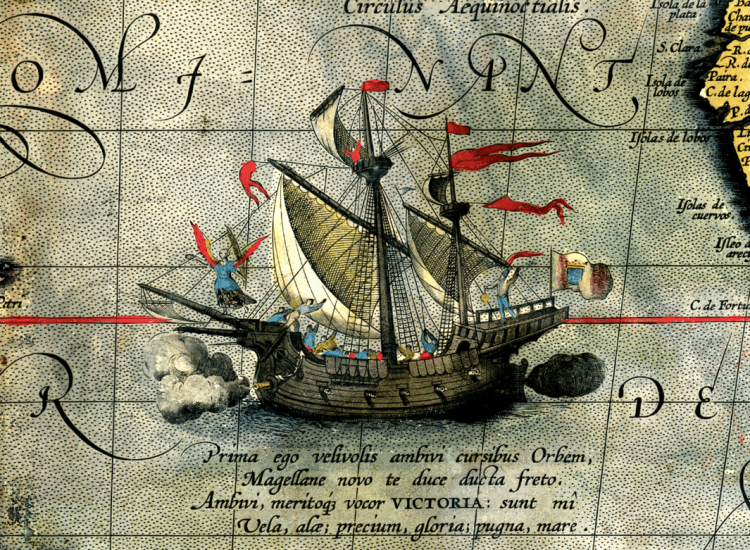 Circulus Aequinoctialis.
Isola de la
plata.
O M J = N A N T
S. Clara.
Paita.
Isola de
lobos
C. de
Isolas de lobos
Isolas de
cuervos.
C. de
R D E
Prima ego velivolis ambivi cursibus Orbem,
Magellane novo te duce ducta freto.
Ambivi, meritoq́ꝫ vocor VICTORIA: sunt mî
Vela, alæ; precium, gloria; pugna, mare.